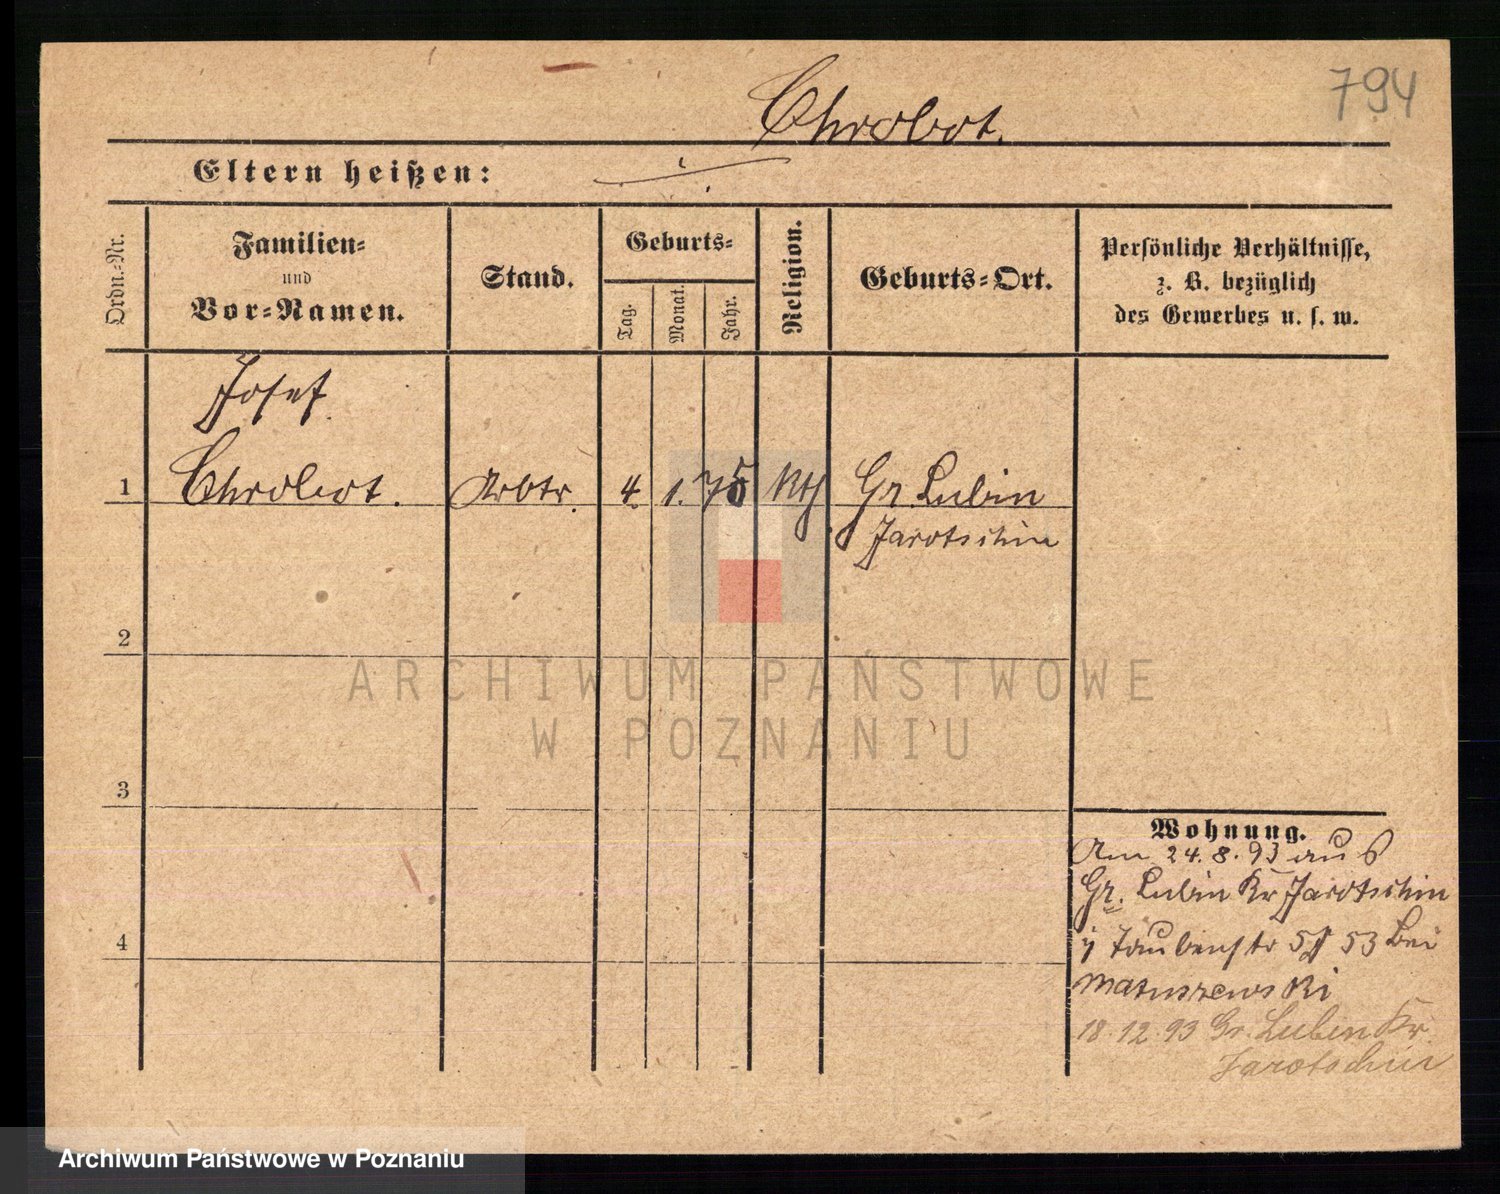 794
Chrobot.
Eltern heißen:
Ordn.-Nr.
Familien-
und
Vor-Namen.
Stand.
Geburts-
Tag.
Monat.
Jahr.
Religion.
Geburts-Ort.
Persönliche Verhältnisse,
z. B. bezüglich
des Gewerbes u. s. w.
Josef
1 Chrobot. Arbtr. 4. 1. 75 Kth Gr. Lubin
Jarotschin
2
3
4
Wohnung.
Am 24.8.93 aus
Gr. Lubin Kr Jarotschin
Taubenstr 53 bei
Matuszewski
18.12.93 Gr. Lubin Kr.
Jarotschin
ARCHIWUM PAŃSTWOWE
W POZNANIU
Archiwum Państwowe w Poznaniu